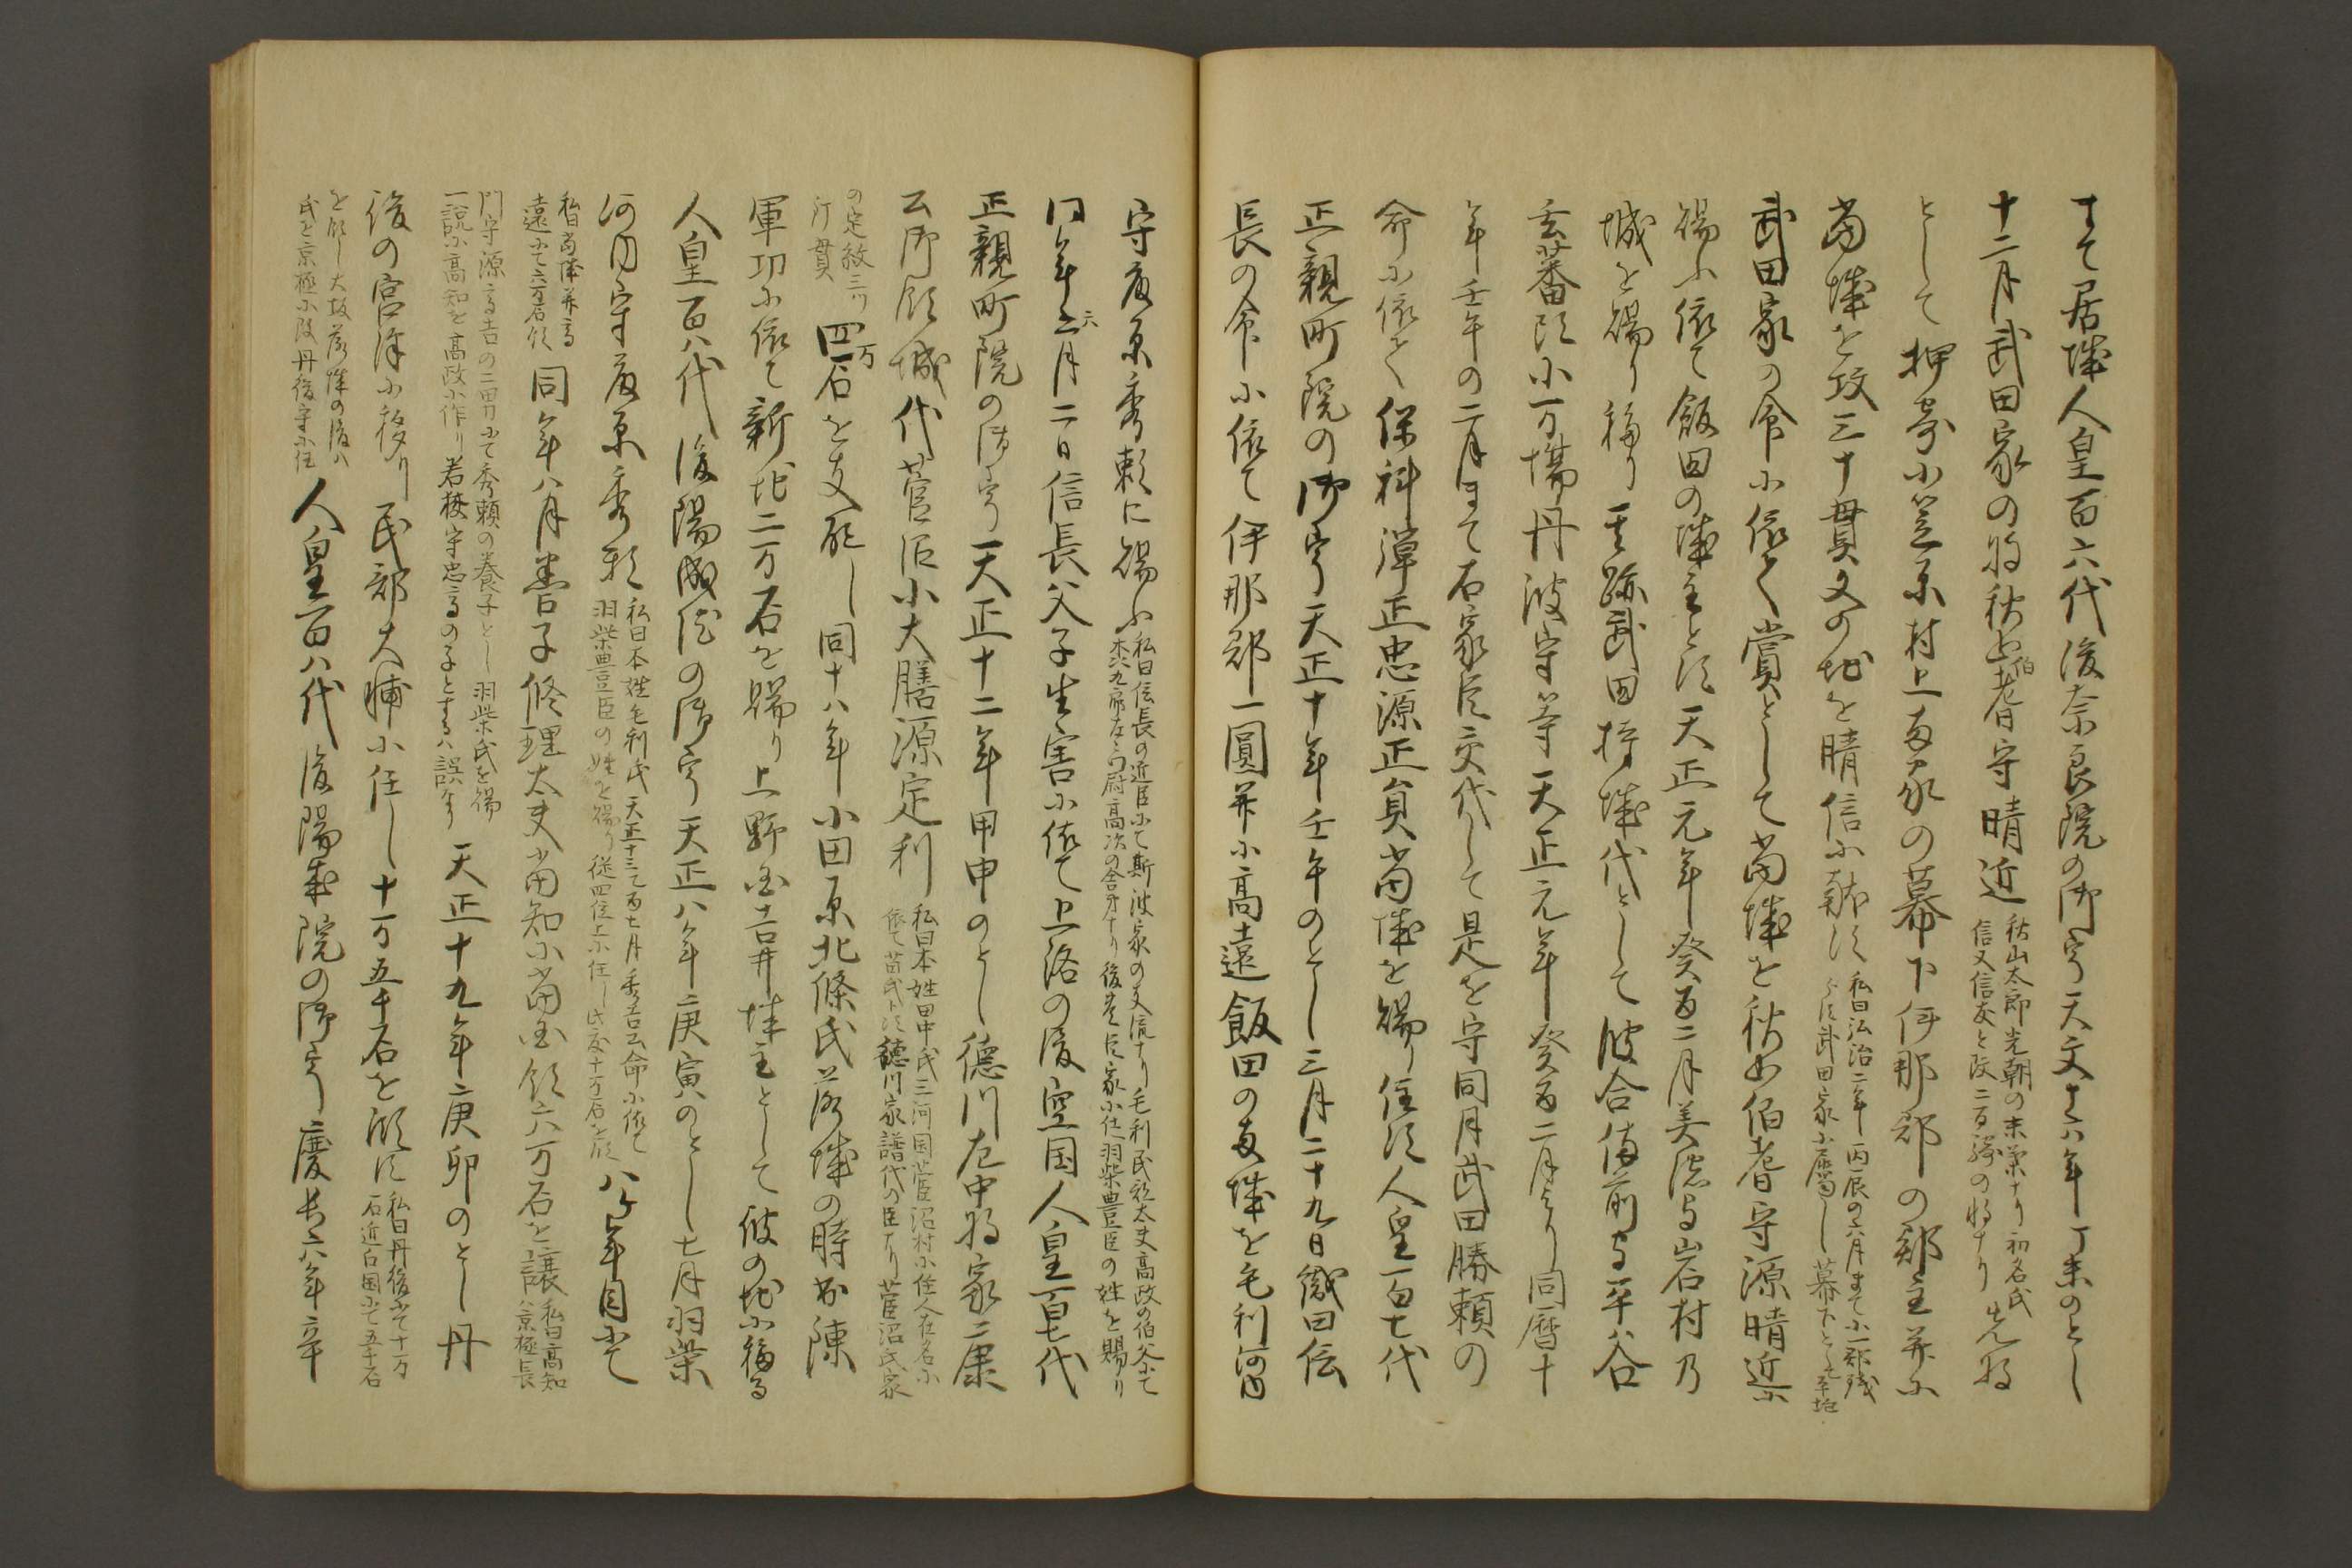 まて居城人皇百六代後奈良院の御宇天文十六年丁未のとし
十二月武田家の将秋山伯耆守晴近
秋山太郎光朝の末葉ナリ初名氏
信又信友と改二百騎の将ナリ
先将
として押寄小笠原村上両家の幕下伊那郡の郡主并ニ
当城を攻三十貫文の地を晴信ニ献ス
私曰弘治二年丙辰の六月まて小一郡残
らす武田家ニ属し幕下となる
武田家の命ニ依て賞として当城を秋山伯耆守源晴近ニ
賜ふ依て飯田の城主とス天正元年癸酉二月美濃国岩村乃
城を賜り移り其跡武田持城代として波合備前守平谷
玄蕃頭小一万場丹波守等天正元年癸酉二月より同暦十
年壬午の二月まて右家臣交代して是を守同月武田勝頼の
命ニ依て保科弾正忠源正員当城を賜り住ス人皇百七代
正親町院の御宇天正十年壬午のとし三月二十九日織田信
長の命ニ依て伊那郡一圓并ニ高遠飯田の両城を毛利河内
守藤原秀頼に賜ふ
私曰信長の近臣ニて斯波家の支流ナリ毛利民部太夫高政の伯父ニて
九郎左ヱ門尉高次の舎弟ナリ後豊臣家ニ仕羽柴豊臣の姓を賜り
同年六月二日信長父子生害ニ依て上洛の後空国人皇百七代
正親町院の御宇天正十二年甲申のとし徳川左中将家康
公御領城代菅沼小大膳源定利
私曰本姓田中氏三河国菅沼村ニ住人在名ニ
依て苗氏トス徳川家譜代の臣なり菅沼氏家
の定紋三ツ
汀貫
四万石を支配し同十八年小田原北條氏落城の時出陳
軍功ニ依て新地二万石を賜り上野国吉井城主として彼の地ニ移る
人皇百八代後陽成院の御宇天正八年庚寅のとし七月羽柴
河内守藤原秀頼
私曰本姓毛利氏天正十三乙酉七月秀吉公命ニ依て
羽柴豊臣の姓を賜り従四位上ニ任し此度十万石を領
八ケ年目ニて
私曰当城并高
遠ニて六万石領
同年八月養子修理太夫高知ニ当国領六万石を譲
私曰高知
ハ京極長
門守源高吉の二男ニて秀頼の養子とし羽柴氏を賜
一説ニ高知を高政ニ作り若狭守忠高の子とするハ誤ナリ
天正十九年庚卯のとし丹
後の宮津ニ移り民部大輔ニ任し十一万五千石を領ス
私曰丹後ニて十一万
石近江国ニて五千石
を領し大坂落城の後ハ
氏を京極ニ改丹後守ニ任
人皇百八代後陽成院の御宇慶長六年辛